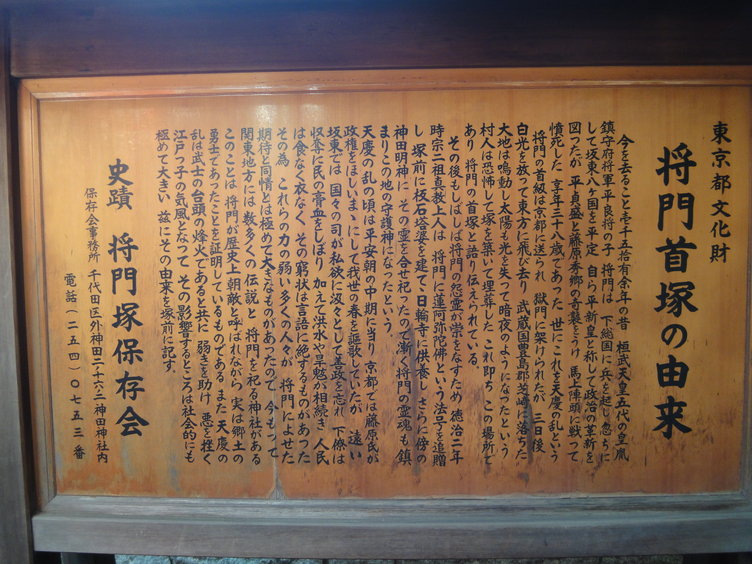 東京都文化財
将門首塚の由来
今を去ること壱千五拾有余年の昔 桓武天皇五代の皇胤
鎮守府将軍平良将の子 将門は 下総国に兵を起し忽ちに
して坂東八ヶ国を平定 自ら平新皇と称して政治の革新を
図ったが 平貞盛と藤原秀郷の奇襲をうけ 馬上陣頭に戦って
憤死した 享年三十八歳であった 世にこれを天慶の乱という
将門の首級は京都に送られ 獄門に架けられたが 三日後
白光を放って東方に飛び去り 武蔵国豊島郡芝崎に落ちた
大地は鳴動し太陽も光を失って暗夜のようになったという
村人は恐怖して塚を築いて埋葬した これ即ち この場所で
あり 将門の首塚と語り伝えられている。
その後もしばしば将門の怨霊が祟をなすため 徳治二年
時宗二祖真教上人は 将門に蓮阿弥陀佛という法号を追贈
し 塚前に板石塔婆を建て 日輪寺に供養し さらに傍の
神田明神に その霊を合せ祀ったので漸く将門の霊魂も鎮
まりこの地の守護神になったという。
天慶の乱の頃は平安朝の中期に当り 京都では藤原氏が
政権をほしいまゝにして我世の春を謳歌していたが 遠い
坂東では 国々の司が私欲に汲々として善政を忘れ 下僚は
収奪に民の膏血をしぼり 加えて洪水や旱魃が相続き 人民
は食なく衣なく、その窮状は言語に絶するものがあった
その為、これらの力の弱い多くの人々が 将門によせた
期待と同情とは極めて大きなものがあったので 今もって
関東地方には数多くの伝説と 将門を祀る神社がある
このことは 将門が歴史上朝敵と呼ばれながら 実は郷土の
勇士であったことを証明しているものである また 天慶の
乱は武士の台頭の烽火であると共に 弱きを助け 悪を挫く
江戸っ子の気風となって その影響するところは社会的にも
極めて大きい 茲にその由来を塚前に記す。
史蹟 将門塚保存会
保存会事務所 千代田区外神田二十六ノ二 神田神社内
電話(二五四)〇七五三番